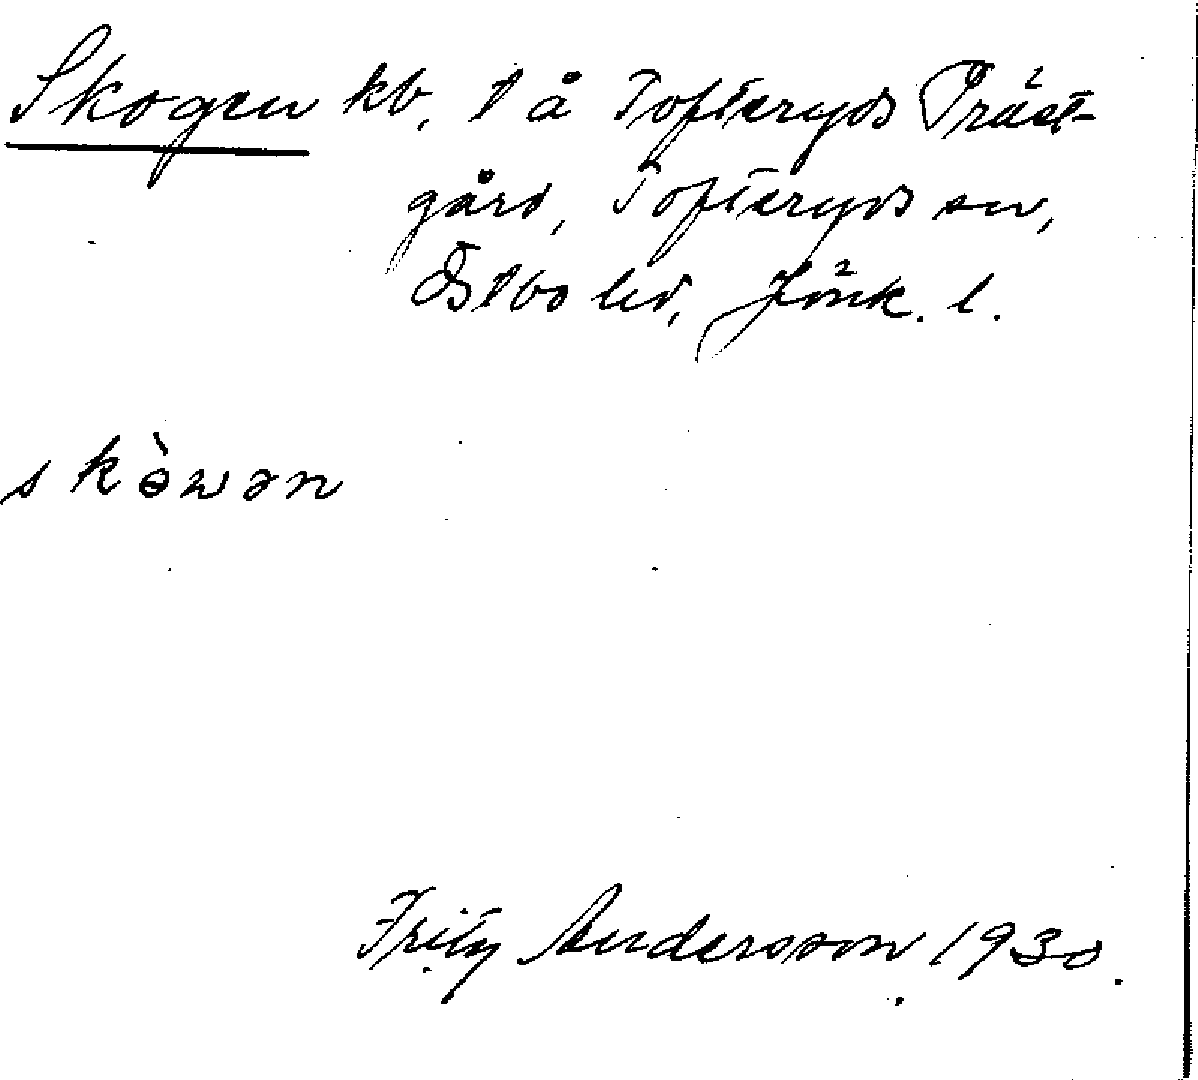 Skogen kb, på Tofteryds Präst-
gård, Tofteryds sn,
Östbo hd, Jönk. l.
skòwən
Fritz Andersson 1930.